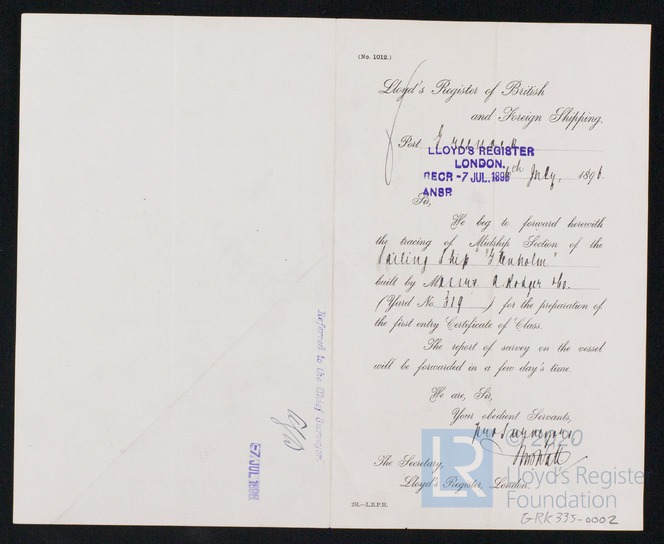 (No. 1012.)
Lloyd's Register of British
and Foreign Shipping,
Port
LLOYD'S REGISTER
LONDON.
RECR -7 JUL. 1896
ANSR
6th July, 1896.
Sir,
We beg to forward herewith
the tracing of Midship Section of the
Sailing Ship "Glenholm"
built by Messrs A Rodger &Co.
(Yard No. 319) for the preparation of
the first entry Certificate of Class.
The report of survey on the vessel
will be forwarded in a few day's time.
We are, Sir,
Your obedient Servants,
The Secretary,
Lloyd's Register, London.
2M.—L.R.P.H.
Referred to the Chief Surveyor,
-7 JUL 1896
LR
© 2020
Lloyd's Registe
Foundation
GRK335-0002